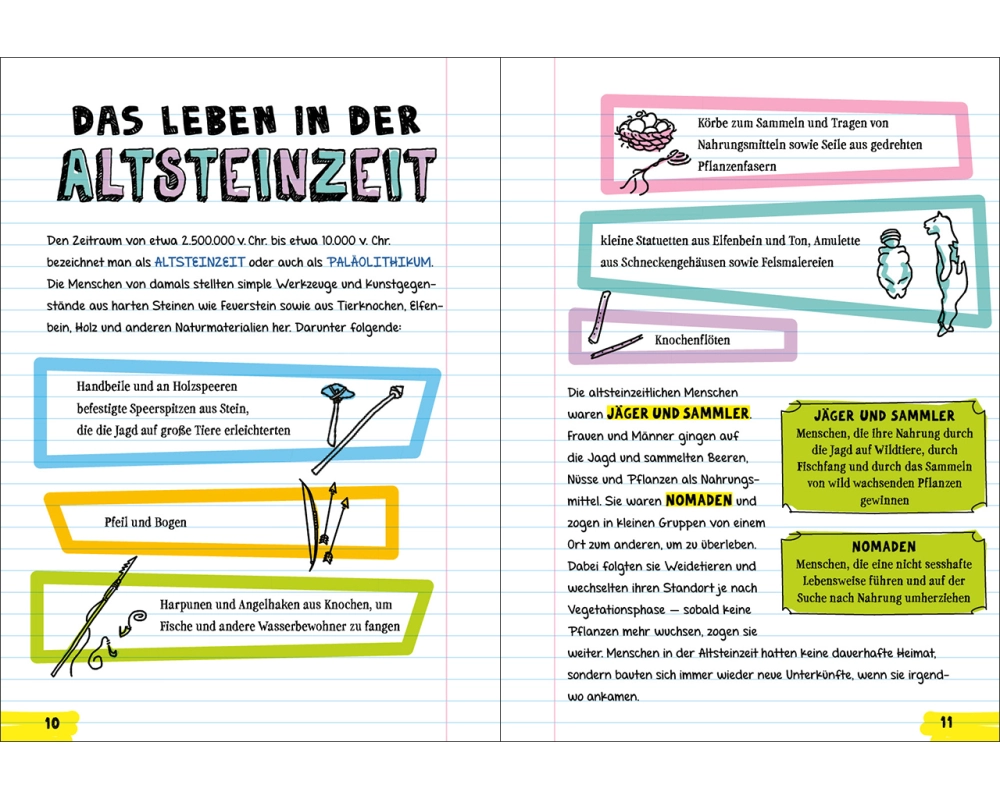 DAS LEBEN IN DER
ALTSTEINZEIT
Den Zeitraum von etwa 2.500.000 v. Chr. bis etwa 10.000 v. Chr.
bezeichnet man als ALTSTEINZEIT oder auch als PALÄOLITHIKUM.
Die Menschen von damals stellten simple Werkzeuge und Kunstgegen-
stände aus harten Steinen wie Feuerstein sowie aus Tierknochen, Elfen-
bein, Holz und anderen Naturmaterialien her. Darunter folgende:
Handbeile und an Holzspeeren
befestigte Speerspitzen aus Stein,
die die Jagd auf große Tiere erleichterten
Pfeil und Bogen
Harpunen und Angelhaken aus Knochen, um
Fische und andere Wasserbewohner zu fangen
10
Körbe zum Sammeln und Tragen von
Nahrungsmitteln sowie Seile aus gedrehten
Pflanzenfasern
kleine Statuetten aus Elfenbein und Ton, Amulette
aus Schneckengehäusen sowie Felsmalereien
Knochenflöten
Die altsteinzeitlichen Menschen
waren JÄGER UND SAMMLER.
Frauen und Männer gingen auf
die Jagd und sammelten Beeren,
Nüsse und Pflanzen als Nahrungs-
mittel. Sie waren NOMADEN und
zogen in kleinen Gruppen von einem
Ort zum anderen, um zu überleben.
Dabei folgten sie Weidetieren und
wechselten ihren Standort je nach
Vegetationsphase – sobald keine
Pflanzen mehr wuchsen, zogen sie
weiter. Menschen in der Altsteinzeit hatten keine dauerhafte Heimat,
sondern bauten sich immer wieder neue Unterkünfte, wenn sie irgend-
wo ankamen.
JÄGER UND SAMMLER
Menschen, die ihre Nahrung durch
die Jagd auf Wildtiere, durch
Fischfang und durch das Sammeln
von wild wachsenden Pflanzen
gewinnen
NOMADEN
Menschen, die eine nicht sesshafte
Lebensweise führen und auf der
Suche nach Nahrung umherziehen
11